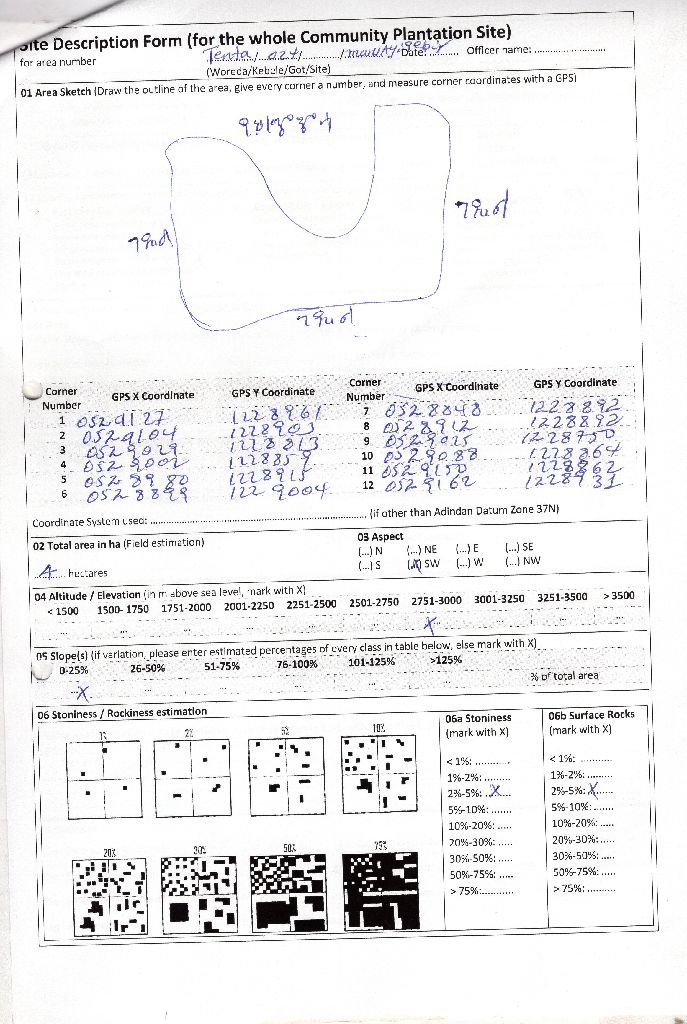 Site Description Form (for the whole Community Plantation Site)
for area number Tenta/ 024/ Date: Officer name:
(Woreda/Kebele/Got/Site)
01 Area Sketch (Draw the outline of the area, give every corner a number, and measure corner coordinates with a GPS)
Corner Number GPS X Coordinate GPS Y Coordinate Corner Number GPS X Coordinate GPS Y Coordinate
1 0529127 1228961 7 0528848 1228892
2 0529104 1228903 8 0528912 1228892
3 0529029 1228813 9 0529025 1228750
4 0529002 1228859 10 0529088 1228864
5 0528980 1228915 11 0529150 1228862
6 0528899 1229004 12 0529162 1228931
Coordinate System used: (if other than Adindan Datum Zone 37N)
02 Total area in ha (Field estimation)
hectares
03 Aspect
(...) N (...) NE (...) E (...) SE
(...) S (X) SW (...) W (...) NW
04 Altitude / Elevation (in m above sea level, mark with X)
< 1500 1500- 1750 1751-2000 2001-2250 2251-2500 2501-2750 2751-3000 3001-3250 3251-3500 > 3500
X
05 Slope(s) (if variation, please enter estimated percentages of every class in table below, else mark with X)
0-25% 26-50% 51-75% 76-100% 101-125% >125%
X % of total area
06 Stoniness / Rockiness estimation
1% 2% 5% 10%
20% 30% 50% 75%
06a Stoniness
(mark with X)
< 1%: ............
1%-2%: .........
2%-5%: ..X...
5%-10%: ......
10%-20%: .....
20%-30%: .....
30%-50%: .....
50%-75%: .....
> 75%:...........
06b Surface Rocks
(mark with X)
< 1%: ............
1%-2%: .........
2%-5%: X.....
5%-10%: ......
10%-20%: .....
20%-30%: .....
30%-50%: .....
50%-75%: .....
> 75%: ..........